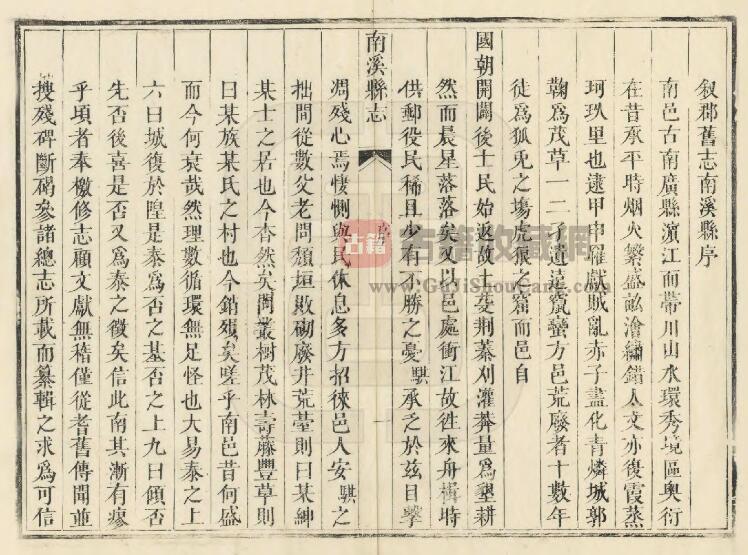 叙郡舊志南溪縣序
南邑古南廣縣濵江而帶川山水環秀境區奥衍
在昔承平時烟火繁盛畝澮繡錯人文亦復霞蒸
珂玖里也逮甲申罹獻賊亂赤子盡化青燐城郭
鞠爲茂草一二孑遺遠竄蠻方邑荒廢者十數年
徒爲狐兎之塲虎狼之窟而邑自
國朝開闢後士民始返故土芟荆蓁刈灌莽量爲墾耕
然而晨星落落矣又以邑處衝江故徃來舟楫時
供郵役民稀且少有不勝之憂騏承乏於兹目擊
南溪縣志
序
一
凋殘心焉悽惻與民休息多方招徠邑人安騏之
拙間從數父老問頽垣敗砌廢井荒薹則曰某紳
某士之居也今杳然矣問叢樹茂林壽藤豐草則
曰某族某氏之村也今銷殘矣嗟乎南邑昔何盛
而今何衰哉然理數循環無足怪也大易泰之上
六曰城復於隍是泰爲否之基否之上九曰傾否
先否後喜是否又爲泰之徵矣信此南其漸有瘳
乎頃者奉檄修志顧文獻無稽僅從耆舊傳聞並
搜殘碑斷碣參諸總志所載而纂輯之求爲可信
古籍
古籍收藏网
www.GuJiShouCang.com